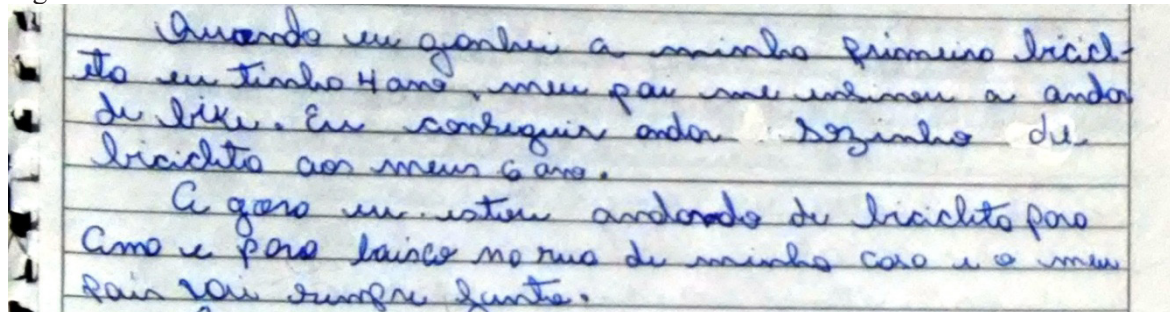 Quando eu ganhei a minha primeira bicicl-
ta eu tinha 4 ano, meu pai me ensinou a andar
de bike. Eu conseguir andar sozinho de
bicicleta aos meus 6 ano.
A gora eu estou andando de bicicleta para
cima e para baixo na rua de minha casa e o meu
pair vai sempre junto.